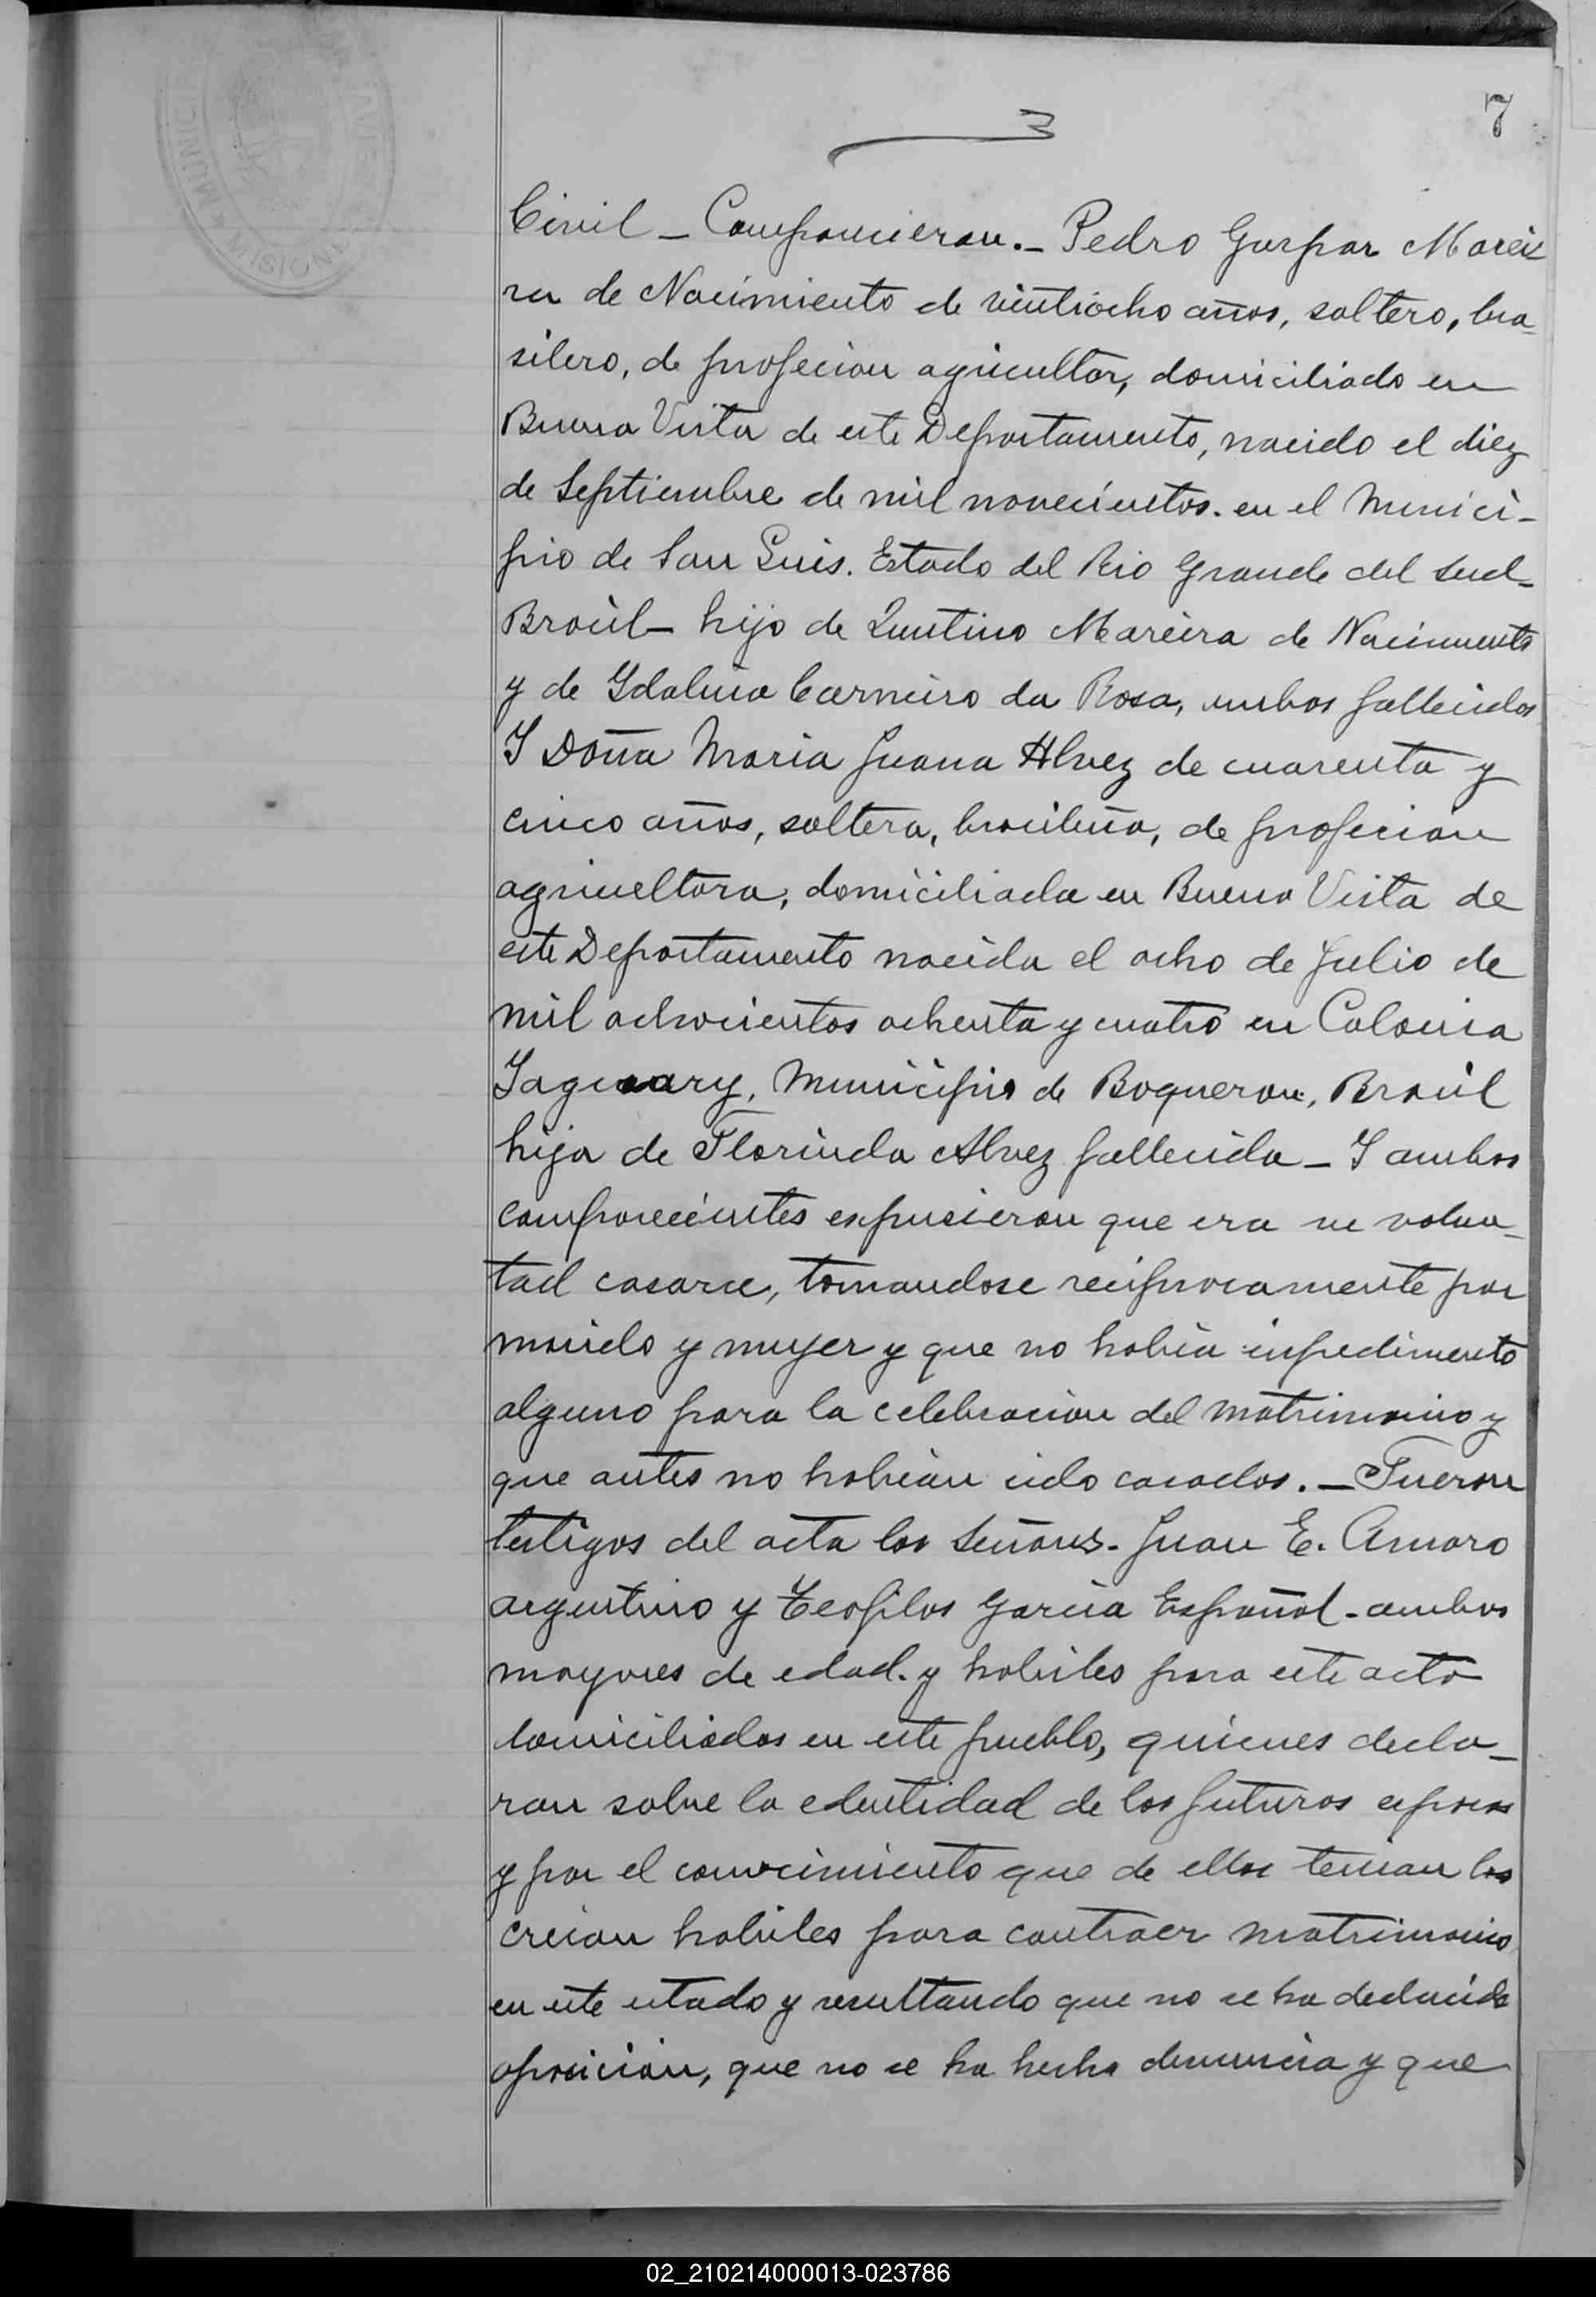 7
3
Civil – Comparecieron. – Pedro Gaspar Marei-
ra de Nacimiento de veintiocho años, soltero, bra-
silero, de profecion agricultor, domiciliado en
Buena Vista de este Departamento, nacido el diez
de Septiembre de mil novecientos. en el Munici-
pio de San Luis. Estado del Rio Grande del Sud-
Brasil – hijo de Quintino Mareira de Nacimiento
y de Ydalina Carneiro da Rosa, ambos fallecidos
Y Doña Maria Juana Alvez de cuarenta y
cinco años, soltera, brasileña, de profecion
agricultora, domiciliada en Buena Vista de
este Departamento nacida el ocho de Julio de
mil ochocientos ochenta y cuatro en Colonia
Yaguary, Municipio de Boqueron, Brasil
hija de Florinda Alvez fallecida – Y ambos
comparecientes expusieron que era su volun-
tad casarce, tomandose reciprocamente por
marido y mujer y que no habia inpedimento
alguno para la celebracion del matrimonio y
que antes no habian sido casados. – Fueron
testigos del acta los Señores. Juan E. Amaro
argentino y Teofilos Garcia Español – ambos
mayores de edad. y habiles para este acto
domiciliados en este pueblo, quienes decla-
ran sobre la edentidad de los futuros esposos
y por el conocimiento que de ellos tenian los
creian habiles para contraer matrimonio
en este estado y resultando que no se ha deducido
oposicion, que no se ha hecho denuncia y que
MISIONES
02_210214000013-023786